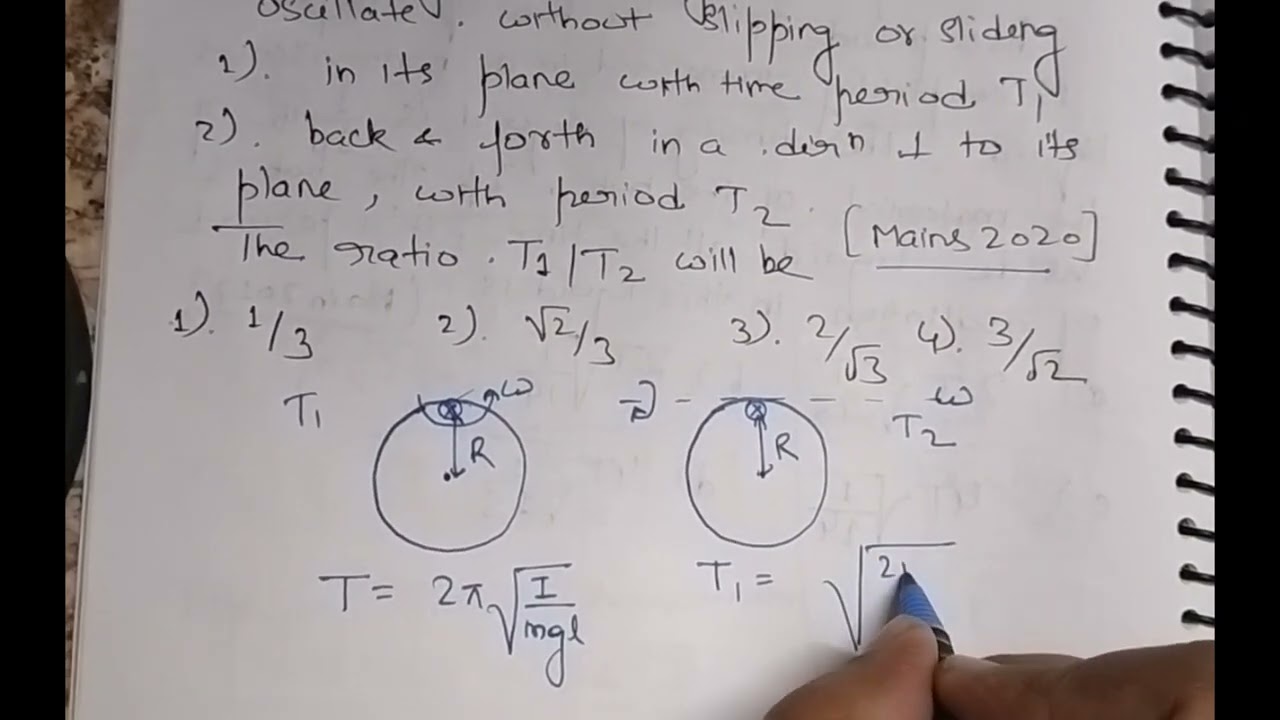 oscillate. without slipping or slideng
1). in its plane worth time period T₁
2). back & forth in a dirⁿ ⊥ to its
plane, worth period T₂.
The ratio. T₁/T₂ will be [Mains 2020]
1). 1/3 2). √2/3 3). 2/√3 4). 3/√2
T₁ ω ω T₂
R R
T = 2π √(I/mgl) T₁ = √2